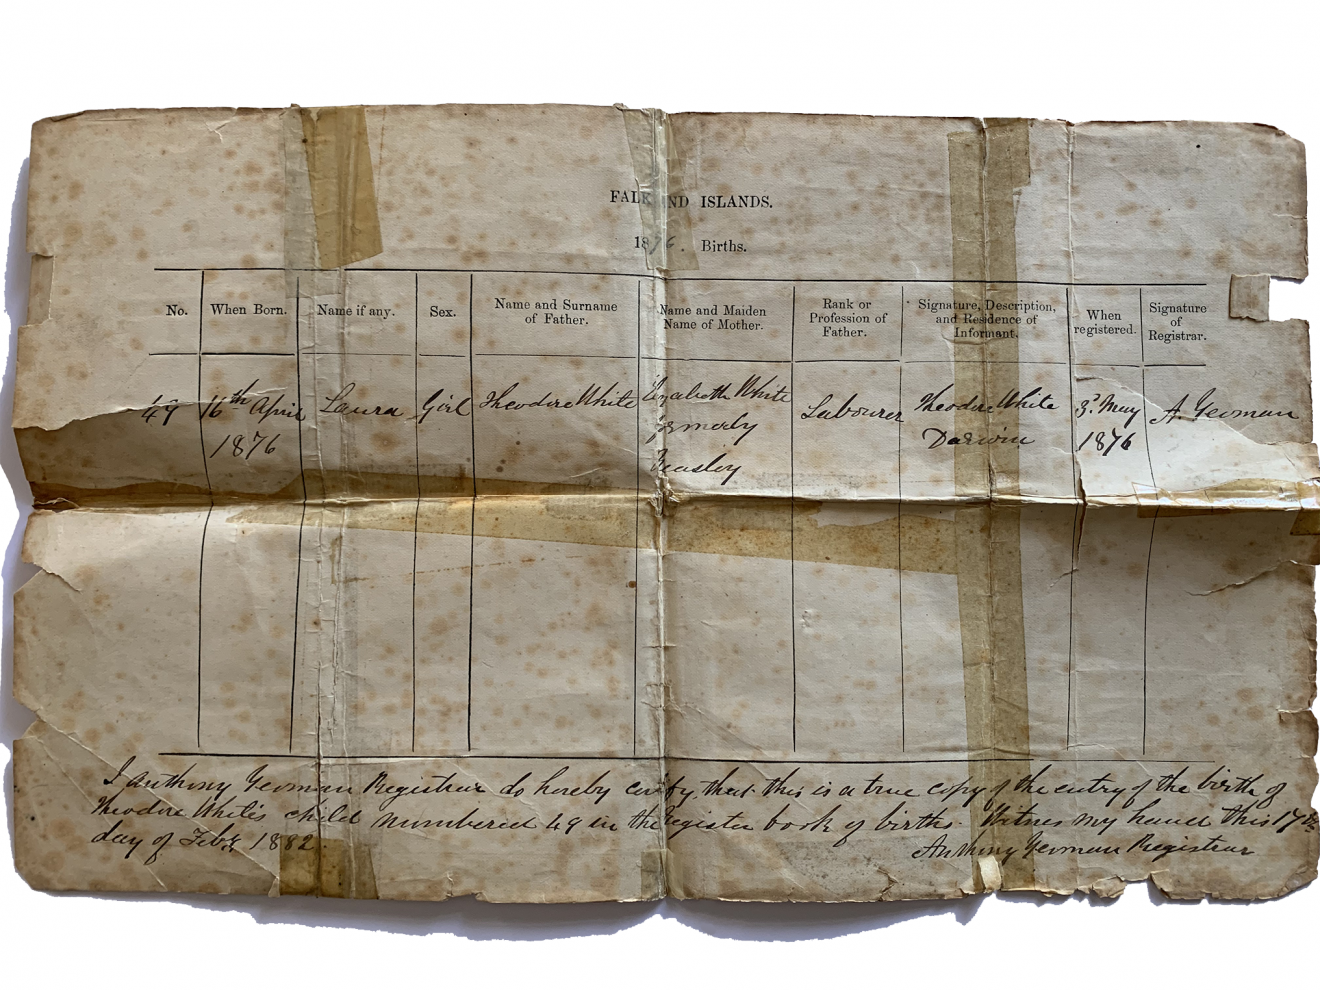 FALK ND ISLANDS.
1876. Births.
No. When Born. Name if any. Sex. Name and Surname of Father. Name and Maiden Name of Mother. Rank or Profession of Father. Signature, Description, and Residence of Informant. When registered. Signature of Registrar.
49 16th April Laura Girl Theodore White Elizabeth White Labourer Theodore White 3d May A. Yeoman
1876 formerly Darwin 1876
I Anthony Yeoman Registrar do hereby certify that this is a true copy of the entry of the birth of
Theodore White's child numbered 49 in the register book of births. Witness my hand this 17th
day of Feby 1882.
Anthony Yeoman Registrar